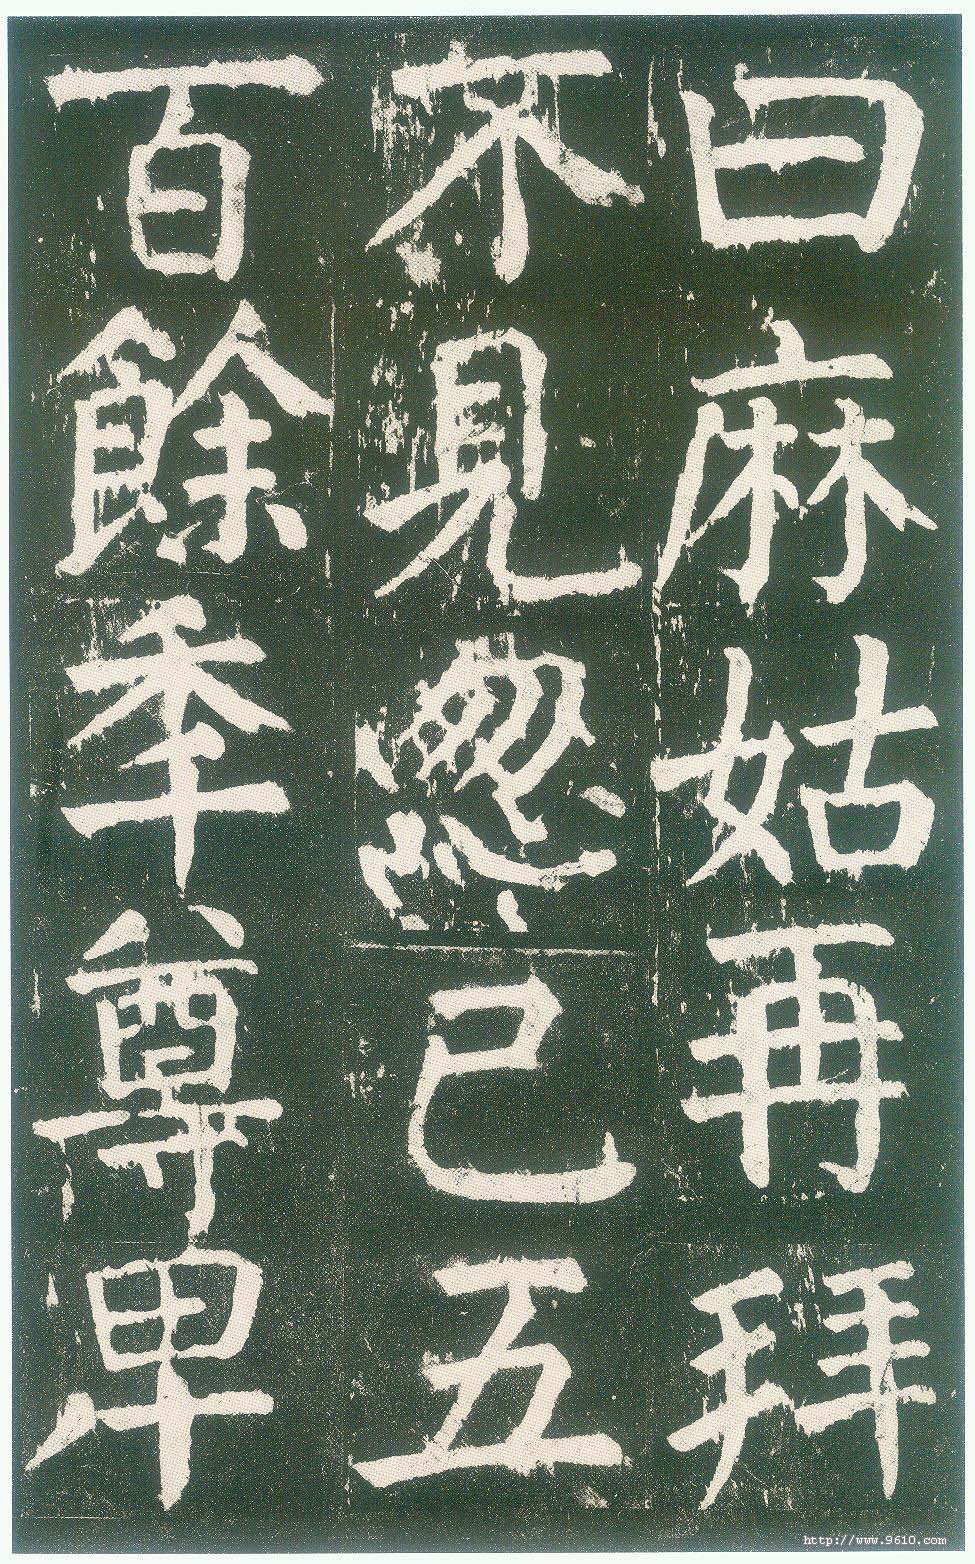 曰麻姑再拜
不見忽已五
百餘年尊卑
http://www.9610.com